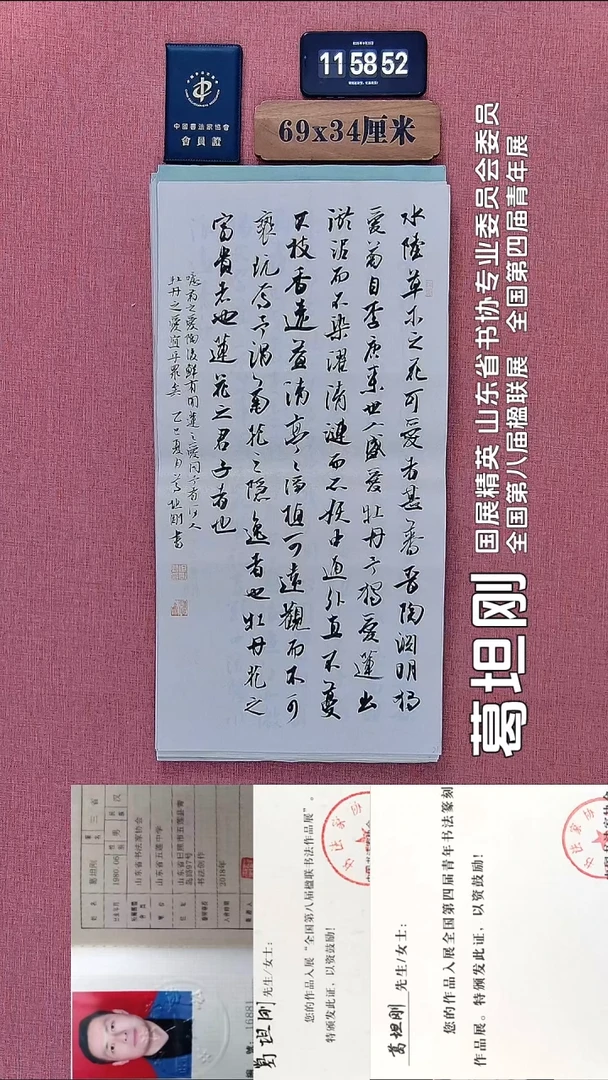 中國書法家協會
會員證
11 58 52
69x34厘米
水陸草木之花可愛者甚蕃晉陶渊明独
愛菊自李唐來世人盛愛牡丹予独愛蓮出
淤泥而不染濯清漣而不妖中通外直不蔓
不枝香遠益清亭々淨植可遠觀而不可
褻玩焉予谓菊花之隱逸者也牡丹花之
富貴者也蓮花之君子者也
噫菊之愛陶後鮮有闻蓮之愛同予者何人
牡丹之愛宜乎眾矣 乙巳夏月葛坦刚書
葛坦刚
国展精英 山东省书协专业委员会委员
全国第八届楹联展 全国第四届青年展
姓名 葛坦刚
山东省书法家协会
山东省五莲中学
书法创作
2018年
16881
葛坦刚 先生/女士:
您的作品入展“全国第八届楹联书法作品展”。
特颁发此证，以资鼓励!
葛坦刚 先生/女士:
您的作品入展全国第四届青年书法篆刻
作品展。特颁发此证，以资鼓励!